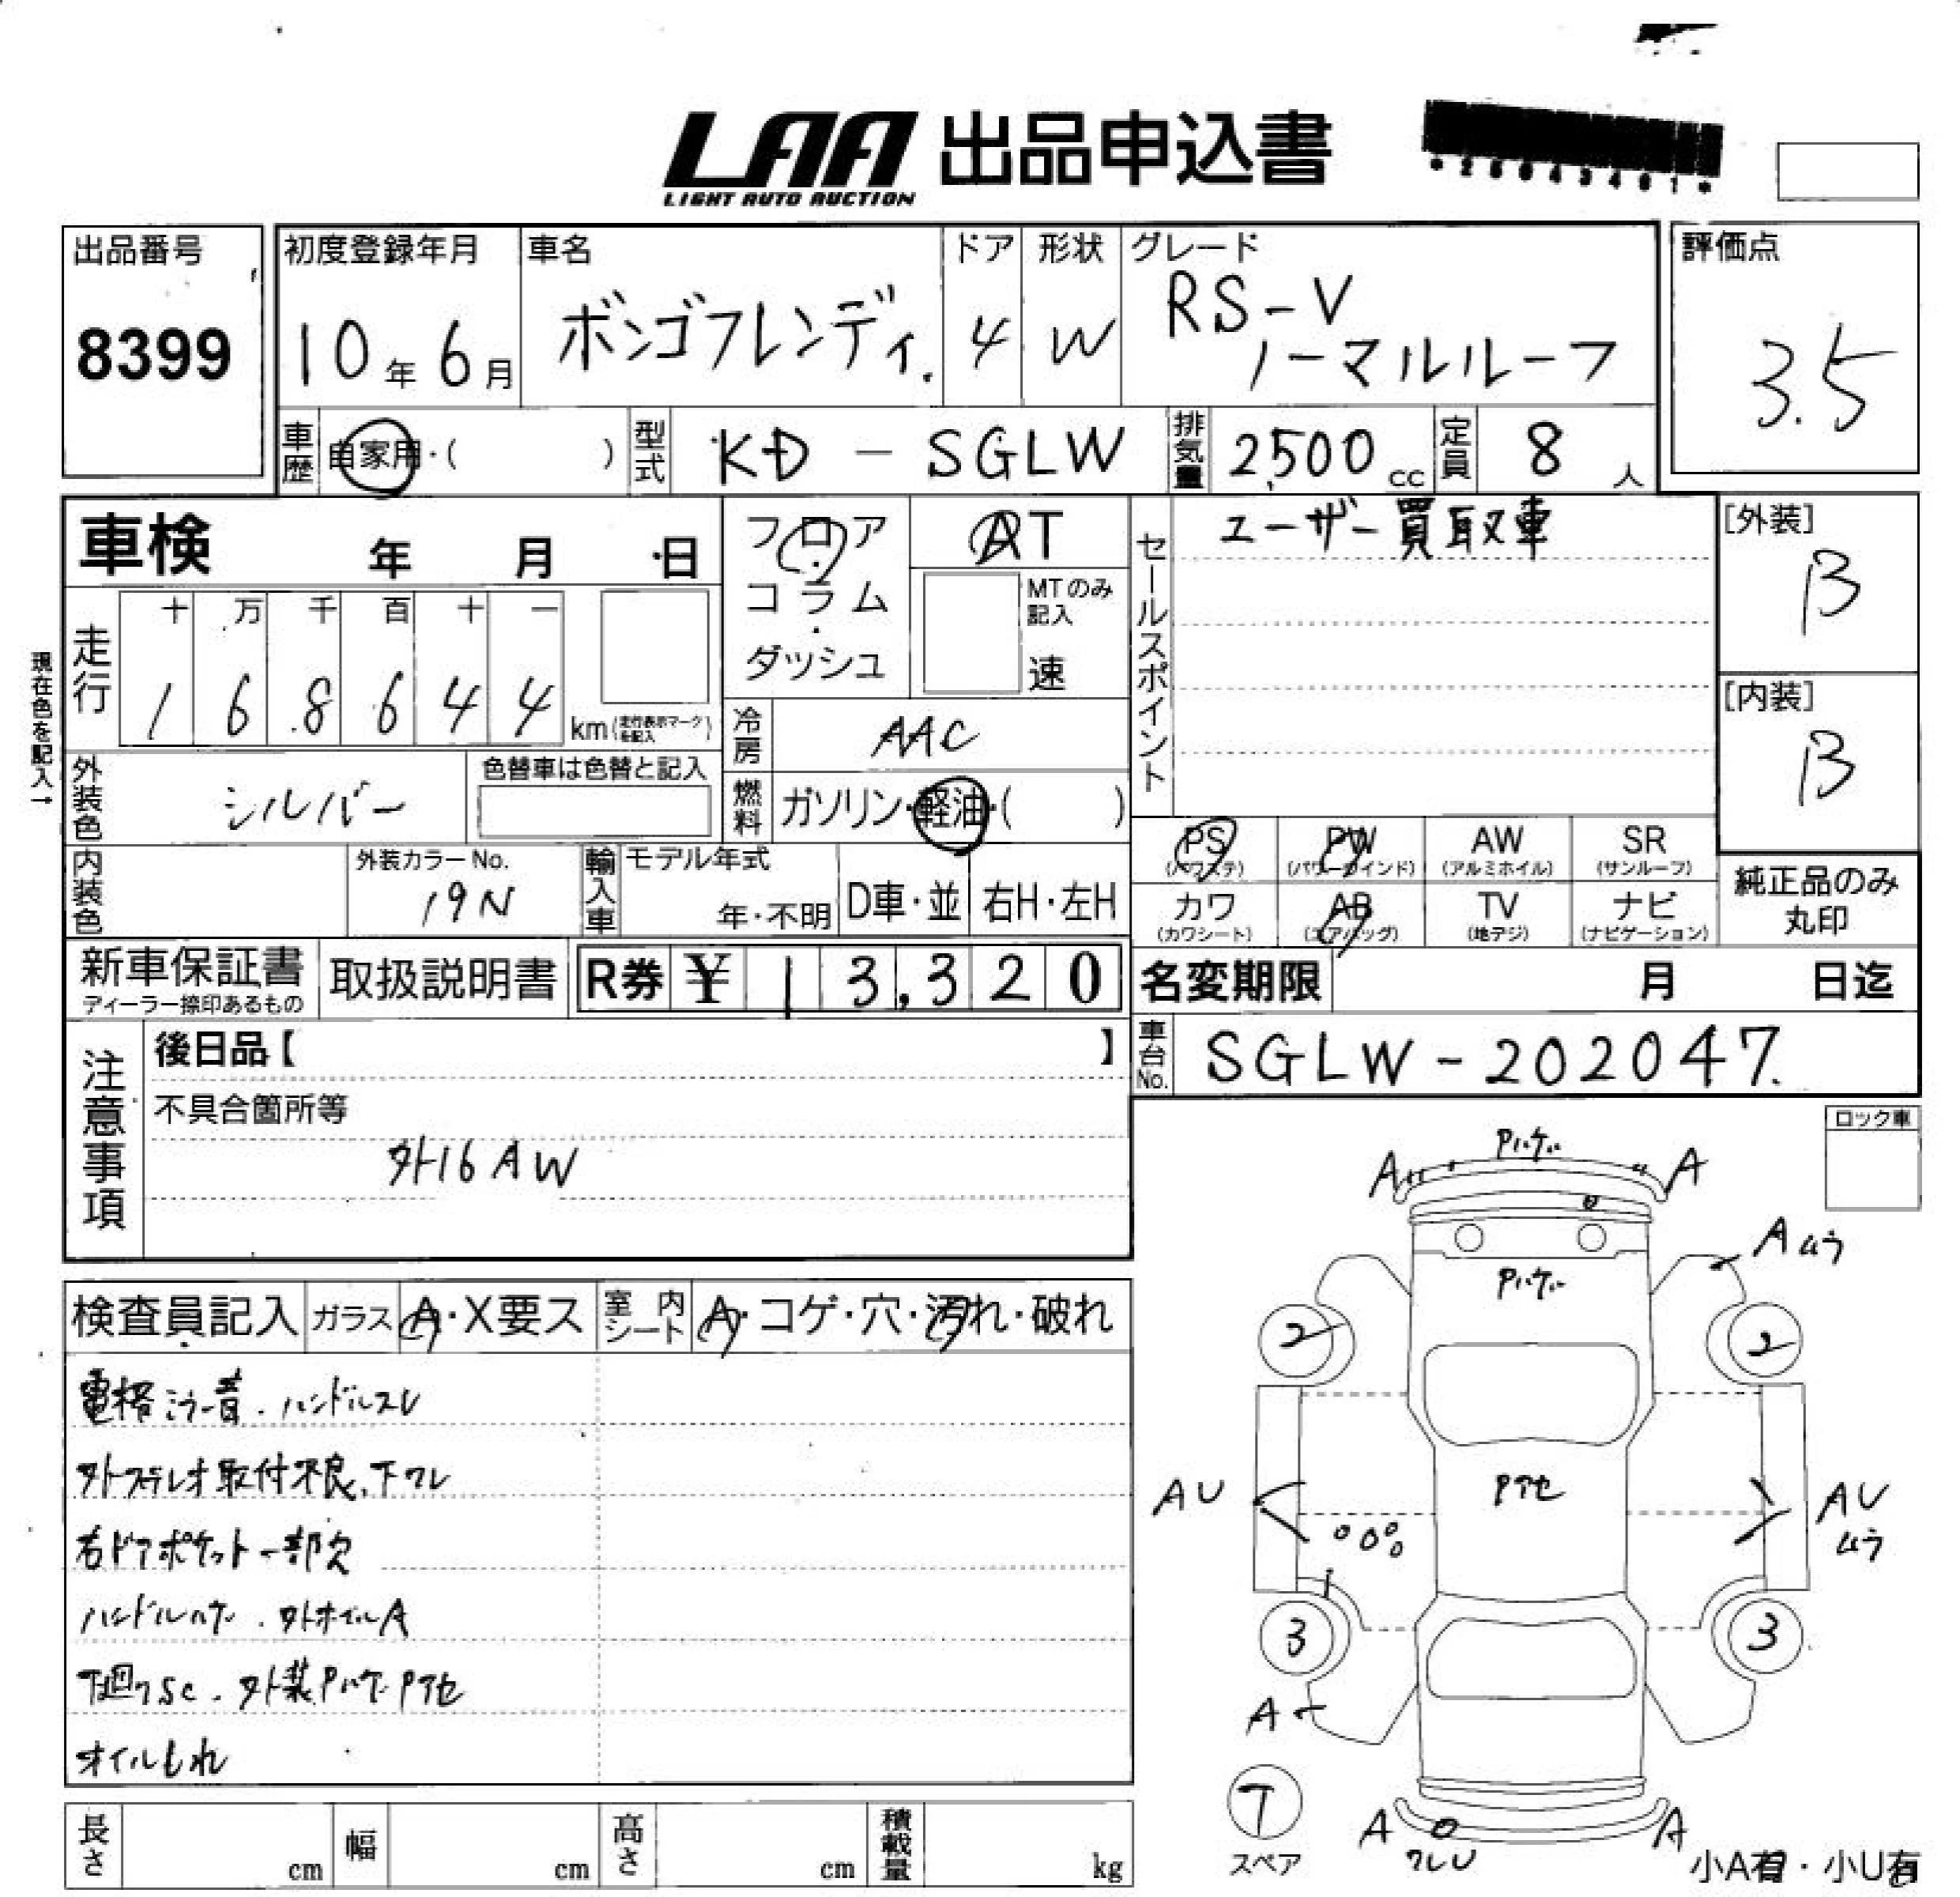 LAA 出品申込書
LIGHT AUTO AUCTION
出品番号
8399
初度登録年月
10年6月
車名
ボンゴフレンディ.
ドア
4
形状
W
グレード
RS-V
ノーマルルーフ
評価点
3.5
車歴
自家用・( )
型式
KD - SGLW
排気量
2,500 cc
定員
8 人
車検 年 月 日
フロア・コラム・ダッシュ
AT
MTのみ記入
速
セールスポイント
ユーザー買取車
[外装]
B
現在色を記入→
走行
十 万 千 百 十 一
1 6 8 6 4 4 km (走行表示マークを記入)
冷房
AAC
[内装]
B
外装色
シルバー
色替車は色替と記入
燃料
ガソリン・軽油・( )
PS (パワステ)
PW (パワーウインド)
AW (アルミホイル)
SR (サンルーフ)
内装色
外装カラーNo.
19N
輸入車
モデル年式
年・不明
D車・並
右H・左H
カワ (カワシート)
AB (エアバッグ)
TV (地デジ)
ナビ (ナビゲーション)
純正品のみ
丸印
新車保証書
ディーラー捺印あるもの
取扱説明書
R券 ¥ 13,320
名変期限 月 日迄
注意事項
後日品【 】
車台No.
SGLW-202047.
不具合箇所等
外16AW
ロック車
検査員記入
ガラス
A・X要ス
室内シート
A・コゲ・穴・汚れ・破れ
電格ミラー音.ハンドルスレ
外ステレオ取付不良、下ワレ
右ドアポケット一部欠
ハンドルハゲ.外ホイルA
下廻りSC.外装Pハゲ.Pアセ
オイルもれ
Pハゲ
A A
Aムラ
Pハゲ
2 2
Pアセ
AU
AU
ムラ
3 3
A
7
スペア
A A
ワレU
小A有・小U有
長さ cm
幅 cm
高さ cm
積載量 kg